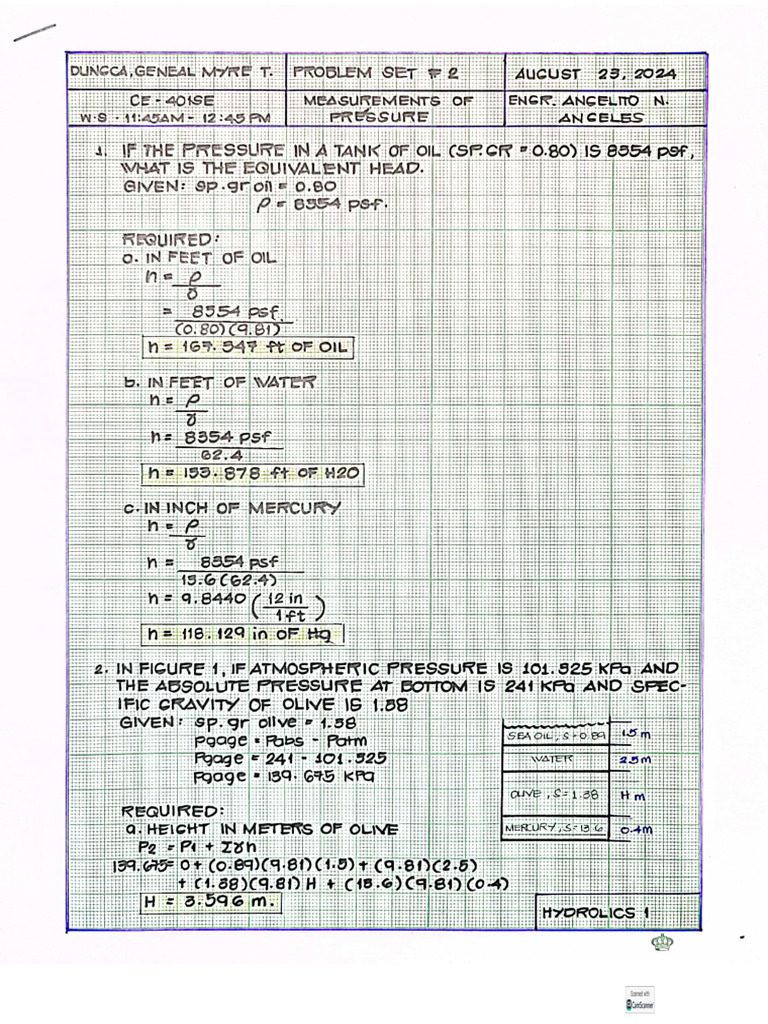 DUNGCA, GENEAL MYRE T.
PROBLEM SET # 2
AUGUST 23, 2024
CE - 401SE
W·S · 11:45AM - 12:45 PM
MEASUREMENTS OF
PRESSURE
ENGR. ANGELITO N.
ANGELES
1. IF THE PRESSURE IN A TANK OF OIL (SP.GR = 0.80) IS 8354 psf,
WHAT IS THE EQUIVALENT HEAD.
GIVEN: sp.gr oil = 0.80
ρ = 8354 psf.
REQUIRED:
a. IN FEET OF OIL
h = ρ
γ
= 8354 psf.
(0.80)(9.81)
h = 167.347 ft OF OIL
b. IN FEET OF WATER
h = ρ
γ
h = 8354 psf
62.4
h = 133.878 ft OF H2O
c. IN INCH OF MERCURY
h = ρ
γ
h = 8354 psf
13.6(62.4)
h = 9.8440 (12 in
1 ft)
h = 118.129 in OF Hg
2. IN FIGURE 1, IF ATMOSPHERIC PRESSURE IS 101.325 KPa AND
THE ABSOLUTE PRESSURE AT BOTTOM IS 241 KPa AND SPEC-
IFIC GRAVITY OF OLIVE IS 1.38
GIVEN: sp.gr olive = 1.38
Pgage = Pabs - Patm
Pgage = 241 - 101.325
Pgage = 139.675 KPa
SEA OIL, S=0.89 1.5 m
WATER 2.5 m
OLIVE, S=1.38 H m
MERCURY, S=13.6 0.4m
REQUIRED:
a. HEIGHT IN METERS OF OLIVE
P2 = P1 + Σγh
139.675= 0 + (0.89)(9.81)(1.5) + (9.81)(2.5)
+ (1.38)(9.81) H + (13.6)(9.81)(0.4)
H = 3.596 m.
HYDROLICS 1
Scanned with
CamScanner